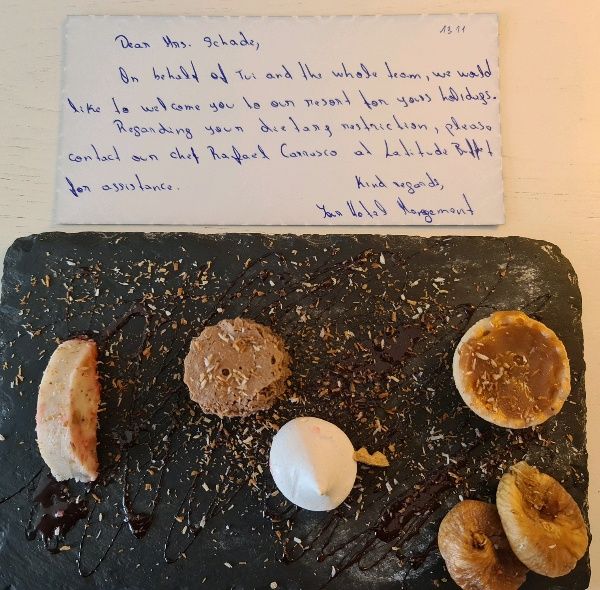 13.11
Dear Mrs. Schade,
On behalf of Tui and the whole team, we would
like to welcome you to our resort for yours holidays.
Regarding your dietary restriction, please
contact our chef Rafael Carrasco at Latitude Buffet
for assistance.
Kind regards,
Your Hotel Mangement